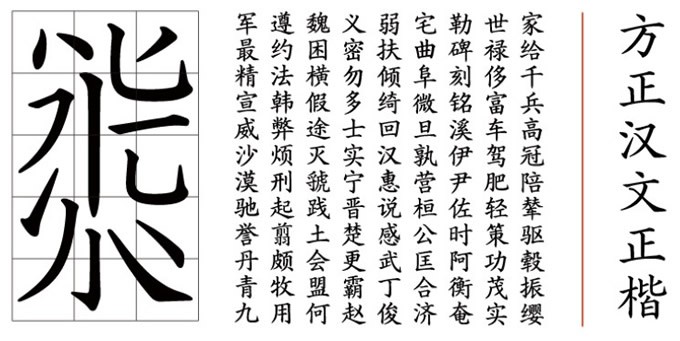 方正汉文正楷
家给千兵高冠陪辇驱毂振缨
世禄侈富车驾肥轻策功茂实
勒碑刻铭溪伊尹佐时阿衡奄
宅曲阜微旦孰营桓公匡合济
弱扶倾绮回汉惠说感武丁俊
义密勿多士实宁晋楚更霸赵
魏困横假途灭虢践土会盟何
遵约法韩弊烦刑起翦颇牧用
军最精宣威沙漠驰誉丹青九